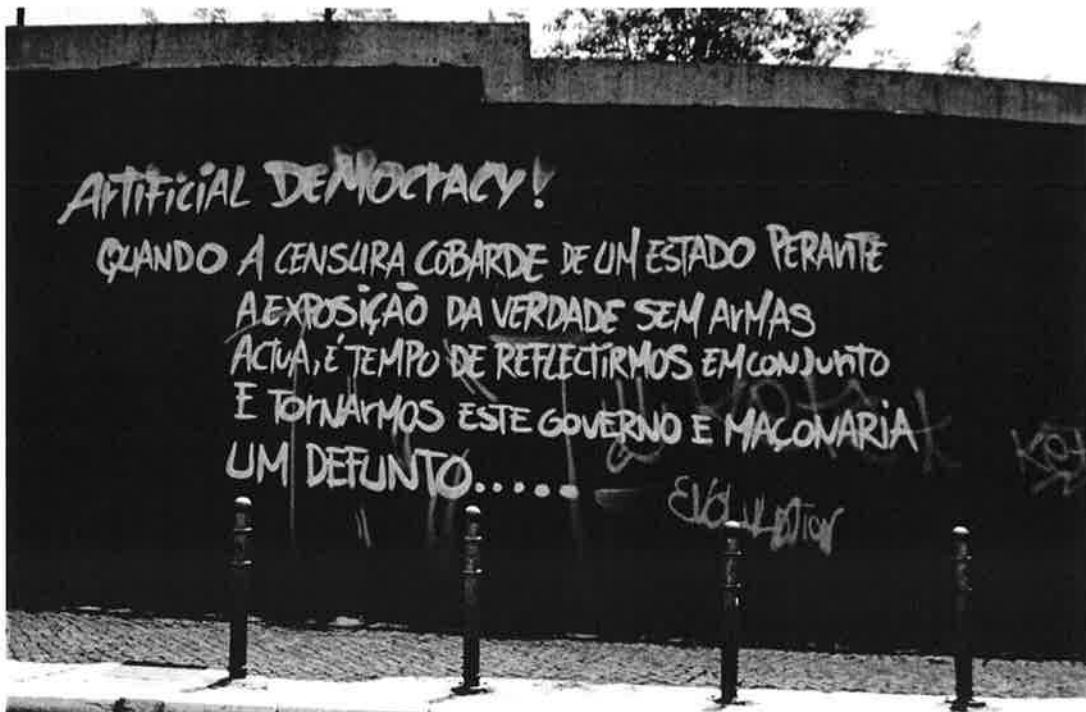 ArTiFiciAL DEMOCrACY!
QUANDO A CENSURA COBARDE DE UM ESTADO PERANTE
A EXPOSIÇÃO DA VERDADE SEM ArMAS
ACTUA, É TEMPO DE REFLECTIRMOS EM CONJUNTO
E TOrNArMOS ESTE GOVERNO E MAÇONARiA
UM DEFUNTO.....